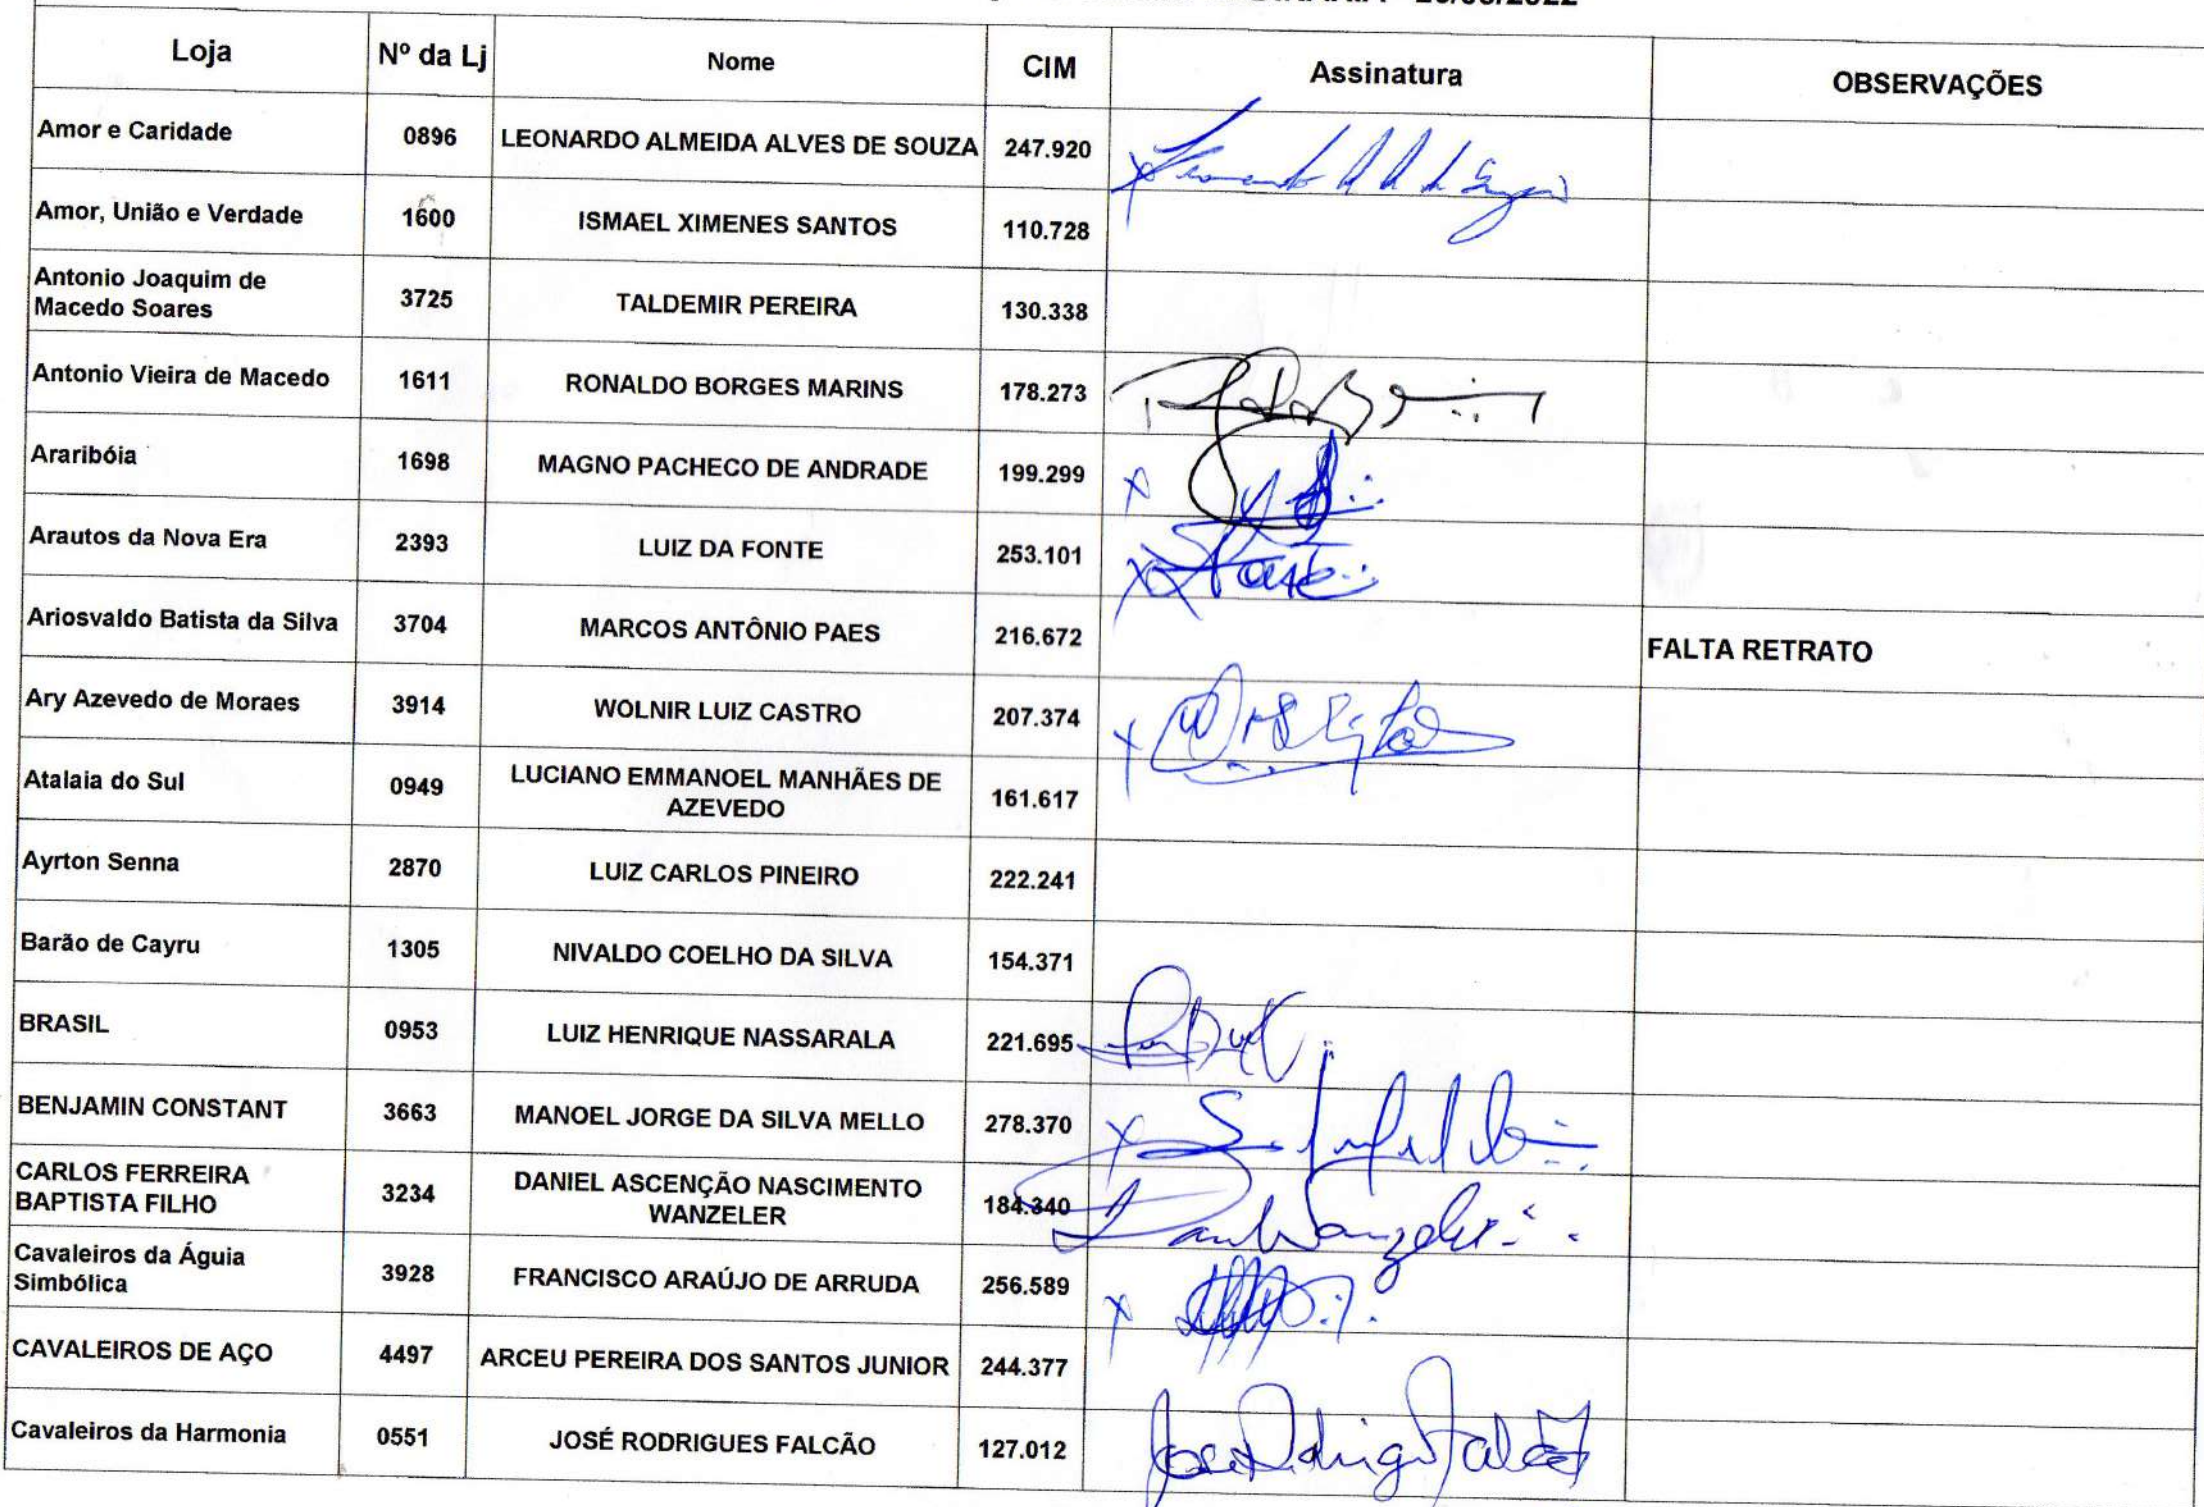 Loja Nº da Lj Nome CIM Assinatura OBSERVAÇÕES
Amor e Caridade 0896 LEONARDO ALMEIDA ALVES DE SOUZA 247.920
Amor, União e Verdade 1600 ISMAEL XIMENES SANTOS 110.728
Antonio Joaquim de
Macedo Soares 3725 TALDEMIR PEREIRA 130.338
Antonio Vieira de Macedo 1611 RONALDO BORGES MARINS 178.273
Araribóia 1698 MAGNO PACHECO DE ANDRADE 199.299
Arautos da Nova Era 2393 LUIZ DA FONTE 253.101
Ariosvaldo Batista da Silva 3704 MARCOS ANTÔNIO PAES 216.672 FALTA RETRATO
Ary Azevedo de Moraes 3914 WOLNIR LUIZ CASTRO 207.374
Atalaia do Sul 0949 LUCIANO EMMANOEL MANHÃES DE
AZEVEDO 161.617
Ayrton Senna 2870 LUIZ CARLOS PINEIRO 222.241
Barão de Cayru 1305 NIVALDO COELHO DA SILVA 154.371
BRASIL 0953 LUIZ HENRIQUE NASSARALA 221.695
BENJAMIN CONSTANT 3663 MANOEL JORGE DA SILVA MELLO 278.370
CARLOS FERREIRA
BAPTISTA FILHO 3234 DANIEL ASCENÇÃO NASCIMENTO
WANZELER 184.340
Cavaleiros da Águia
Simbólica 3928 FRANCISCO ARAÚJO DE ARRUDA 256.589
CAVALEIROS DE AÇO 4497 ARCEU PEREIRA DOS SANTOS JUNIOR 244.377
Cavaleiros da Harmonia 0551 JOSÉ RODRIGUES FALCÃO 127.012